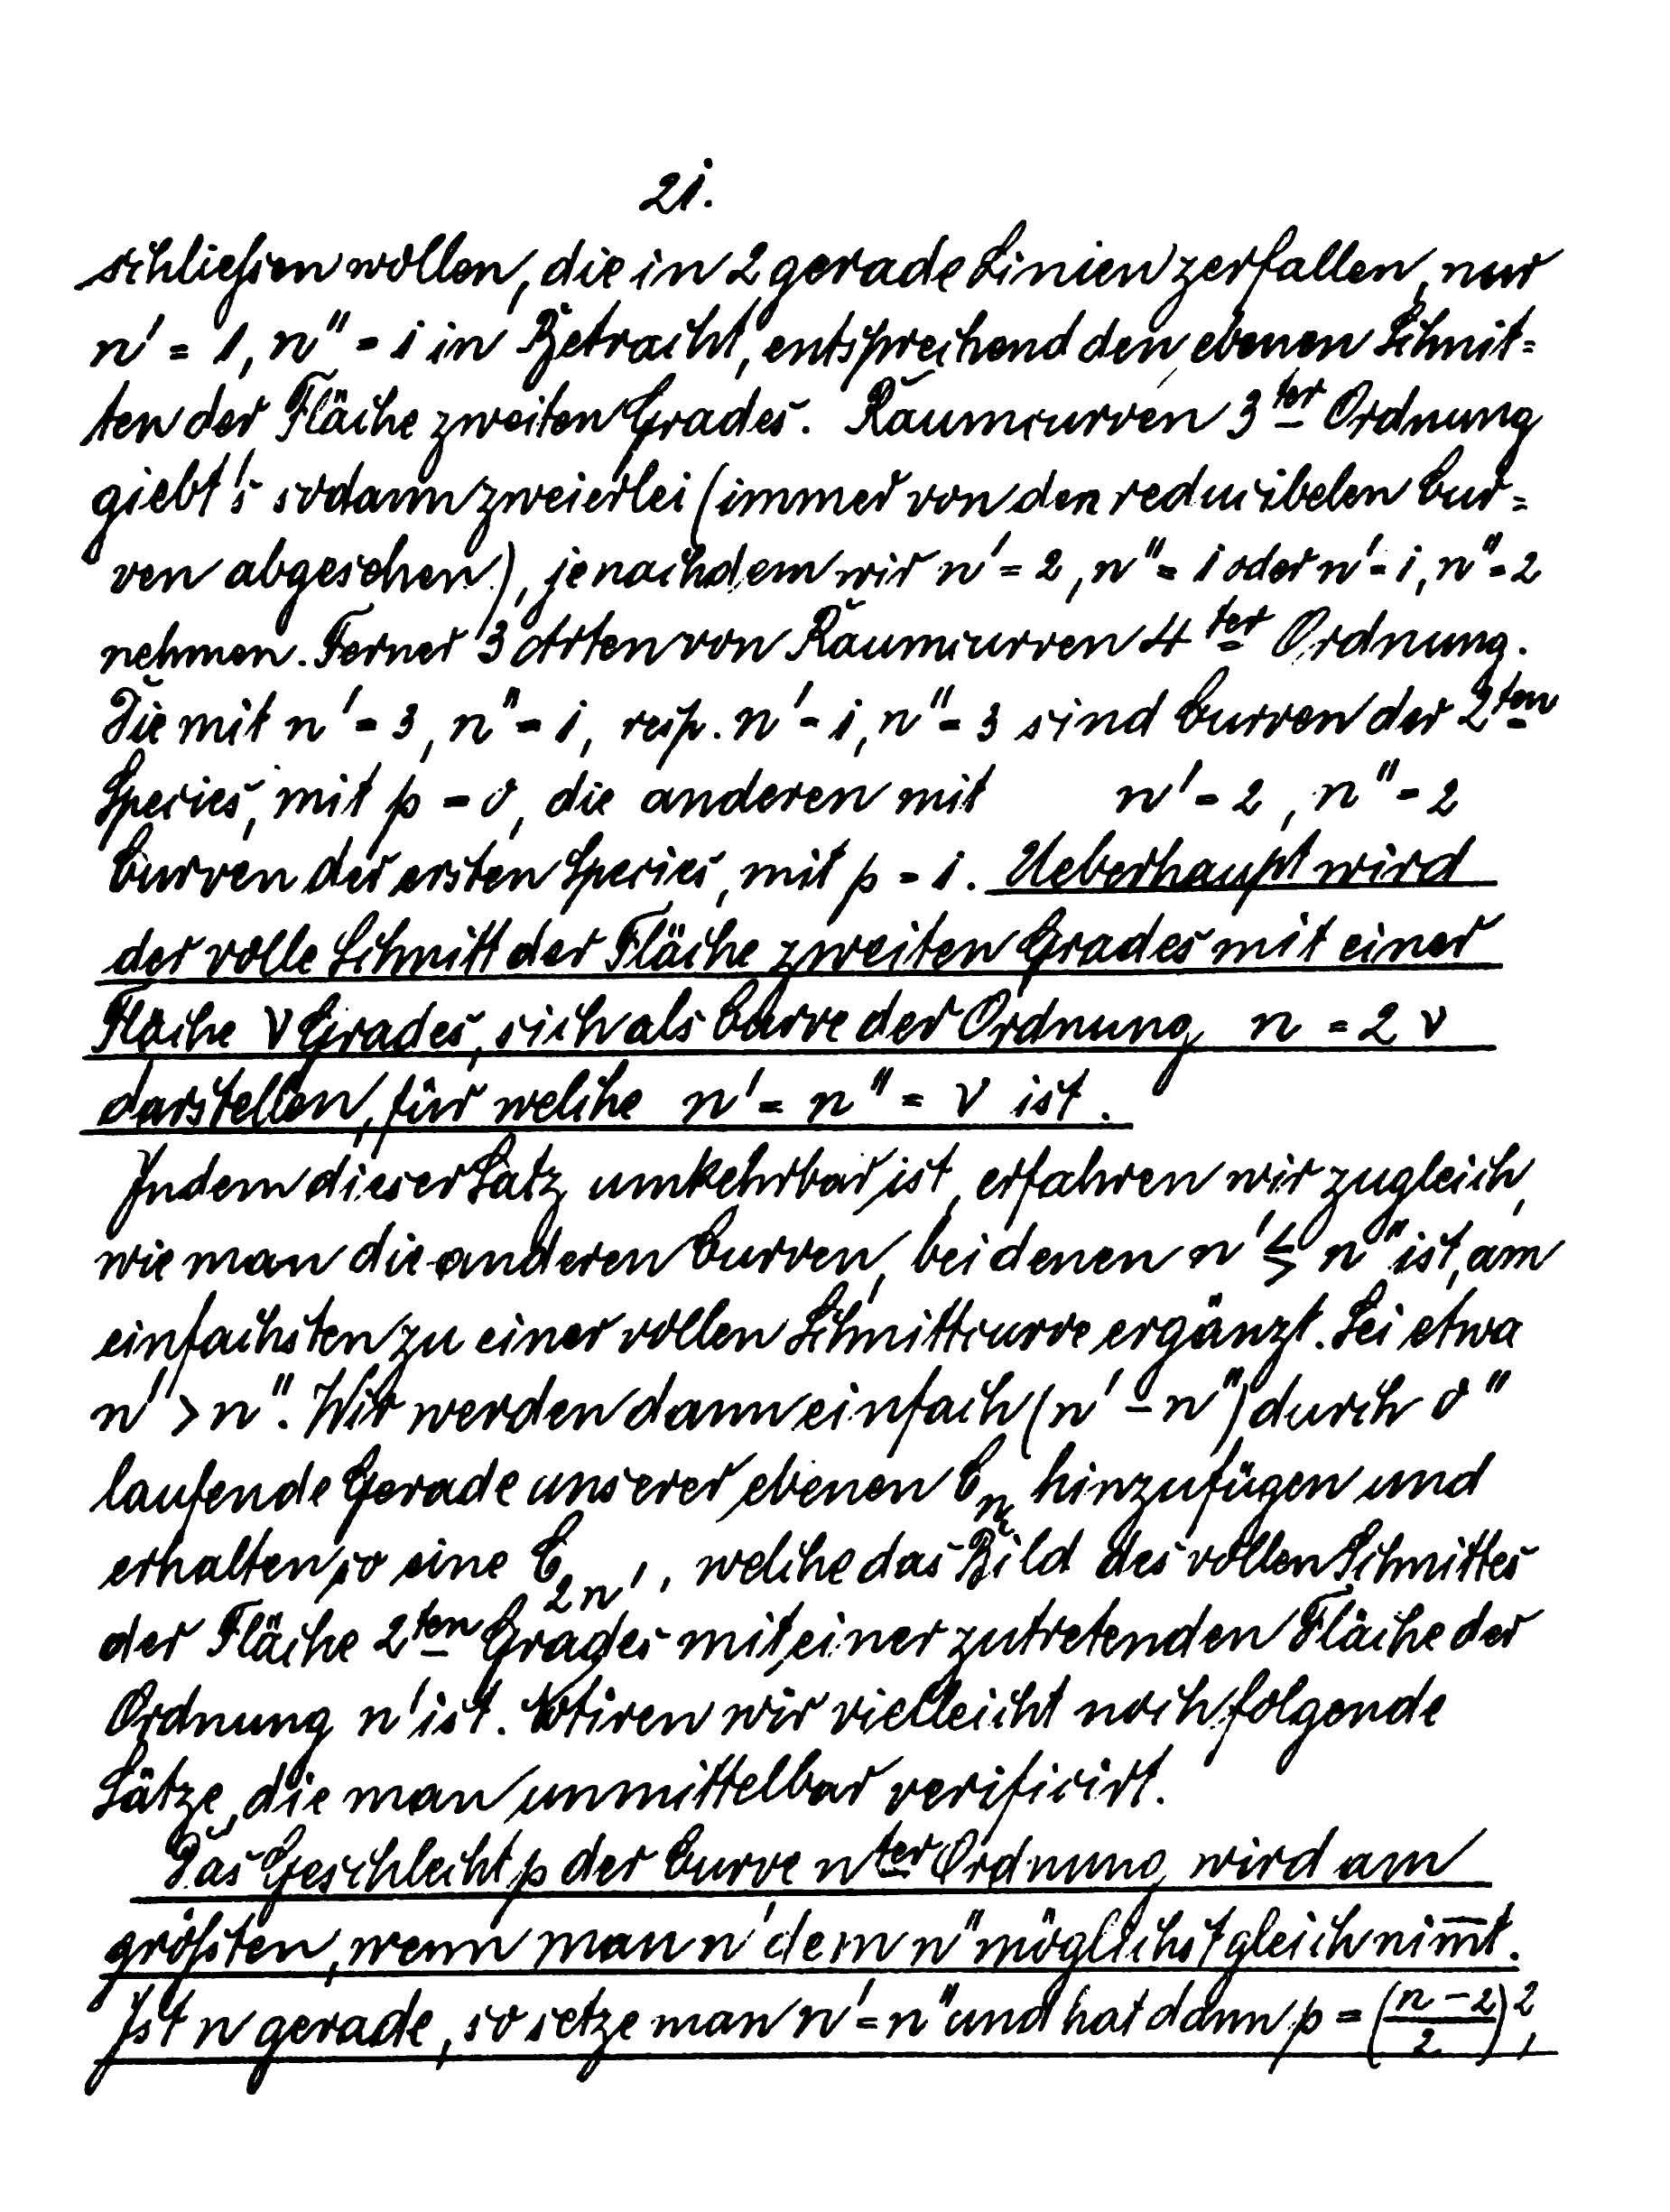 21.
schließen wollen, die in 2 gerade Linien zerfallen, nur
n' = 1, n" = 1 in Betracht, entsprechend den ebenen Schnit=
ten der Fläche zweiten Grades. Raumcurven 3ter Ordnung
giebt's sodann zweierlei (immer von den reducibelen Cur=
ven abgesehen), jenachdem wir n' = 2, n" = 1 oder n' = 1, n" = 2
nehmen. Ferner 3 Arten von Raumcurven 4ter Ordnung.
Die mit n' = 3, n" = 1, resp. n' = 1, n" = 3 sind Curven der 2ten
Species, mit p = 0, die anderen mit n' = 2, n" = 2
Curven der ersten Species, mit p = 1. Ueberhaupt wird
der volle Schnitt der Fläche zweiten Grades mit einer
Fläche ν Grades, sich als Curve der Ordnung n = 2ν
darstellen, für welche n' = n" = ν ist.
Indem dieser Satz umkehrbar ist, erfahren wir zugleich,
wie man die anderen Curven, bei denen n' ≶ n" ist, am
einfachsten zu einer vollen Schnittcurve ergänzt. Sei etwa
n' > n". Wir werden dann einfach (n' - n") durch O"
laufende Gerade unserer ebenen Cn hinzufügen und
erhalten so eine C2n', welche das Bild des vollen Schnittes
der Fläche 2ten Grades mit einer zutretenden Fläche der
Ordnung n' ist. Notiren wir vielleicht noch folgende
Sätze, die man unmittelbar verificirt.
Das Geschlecht p der Curve nter Ordnung wird am
größten, wenn man n' dem n" möglichst gleich nim̅t.
Ist n gerade, so setze man n' = n" und hat dann p = ((n-2)/2)²,